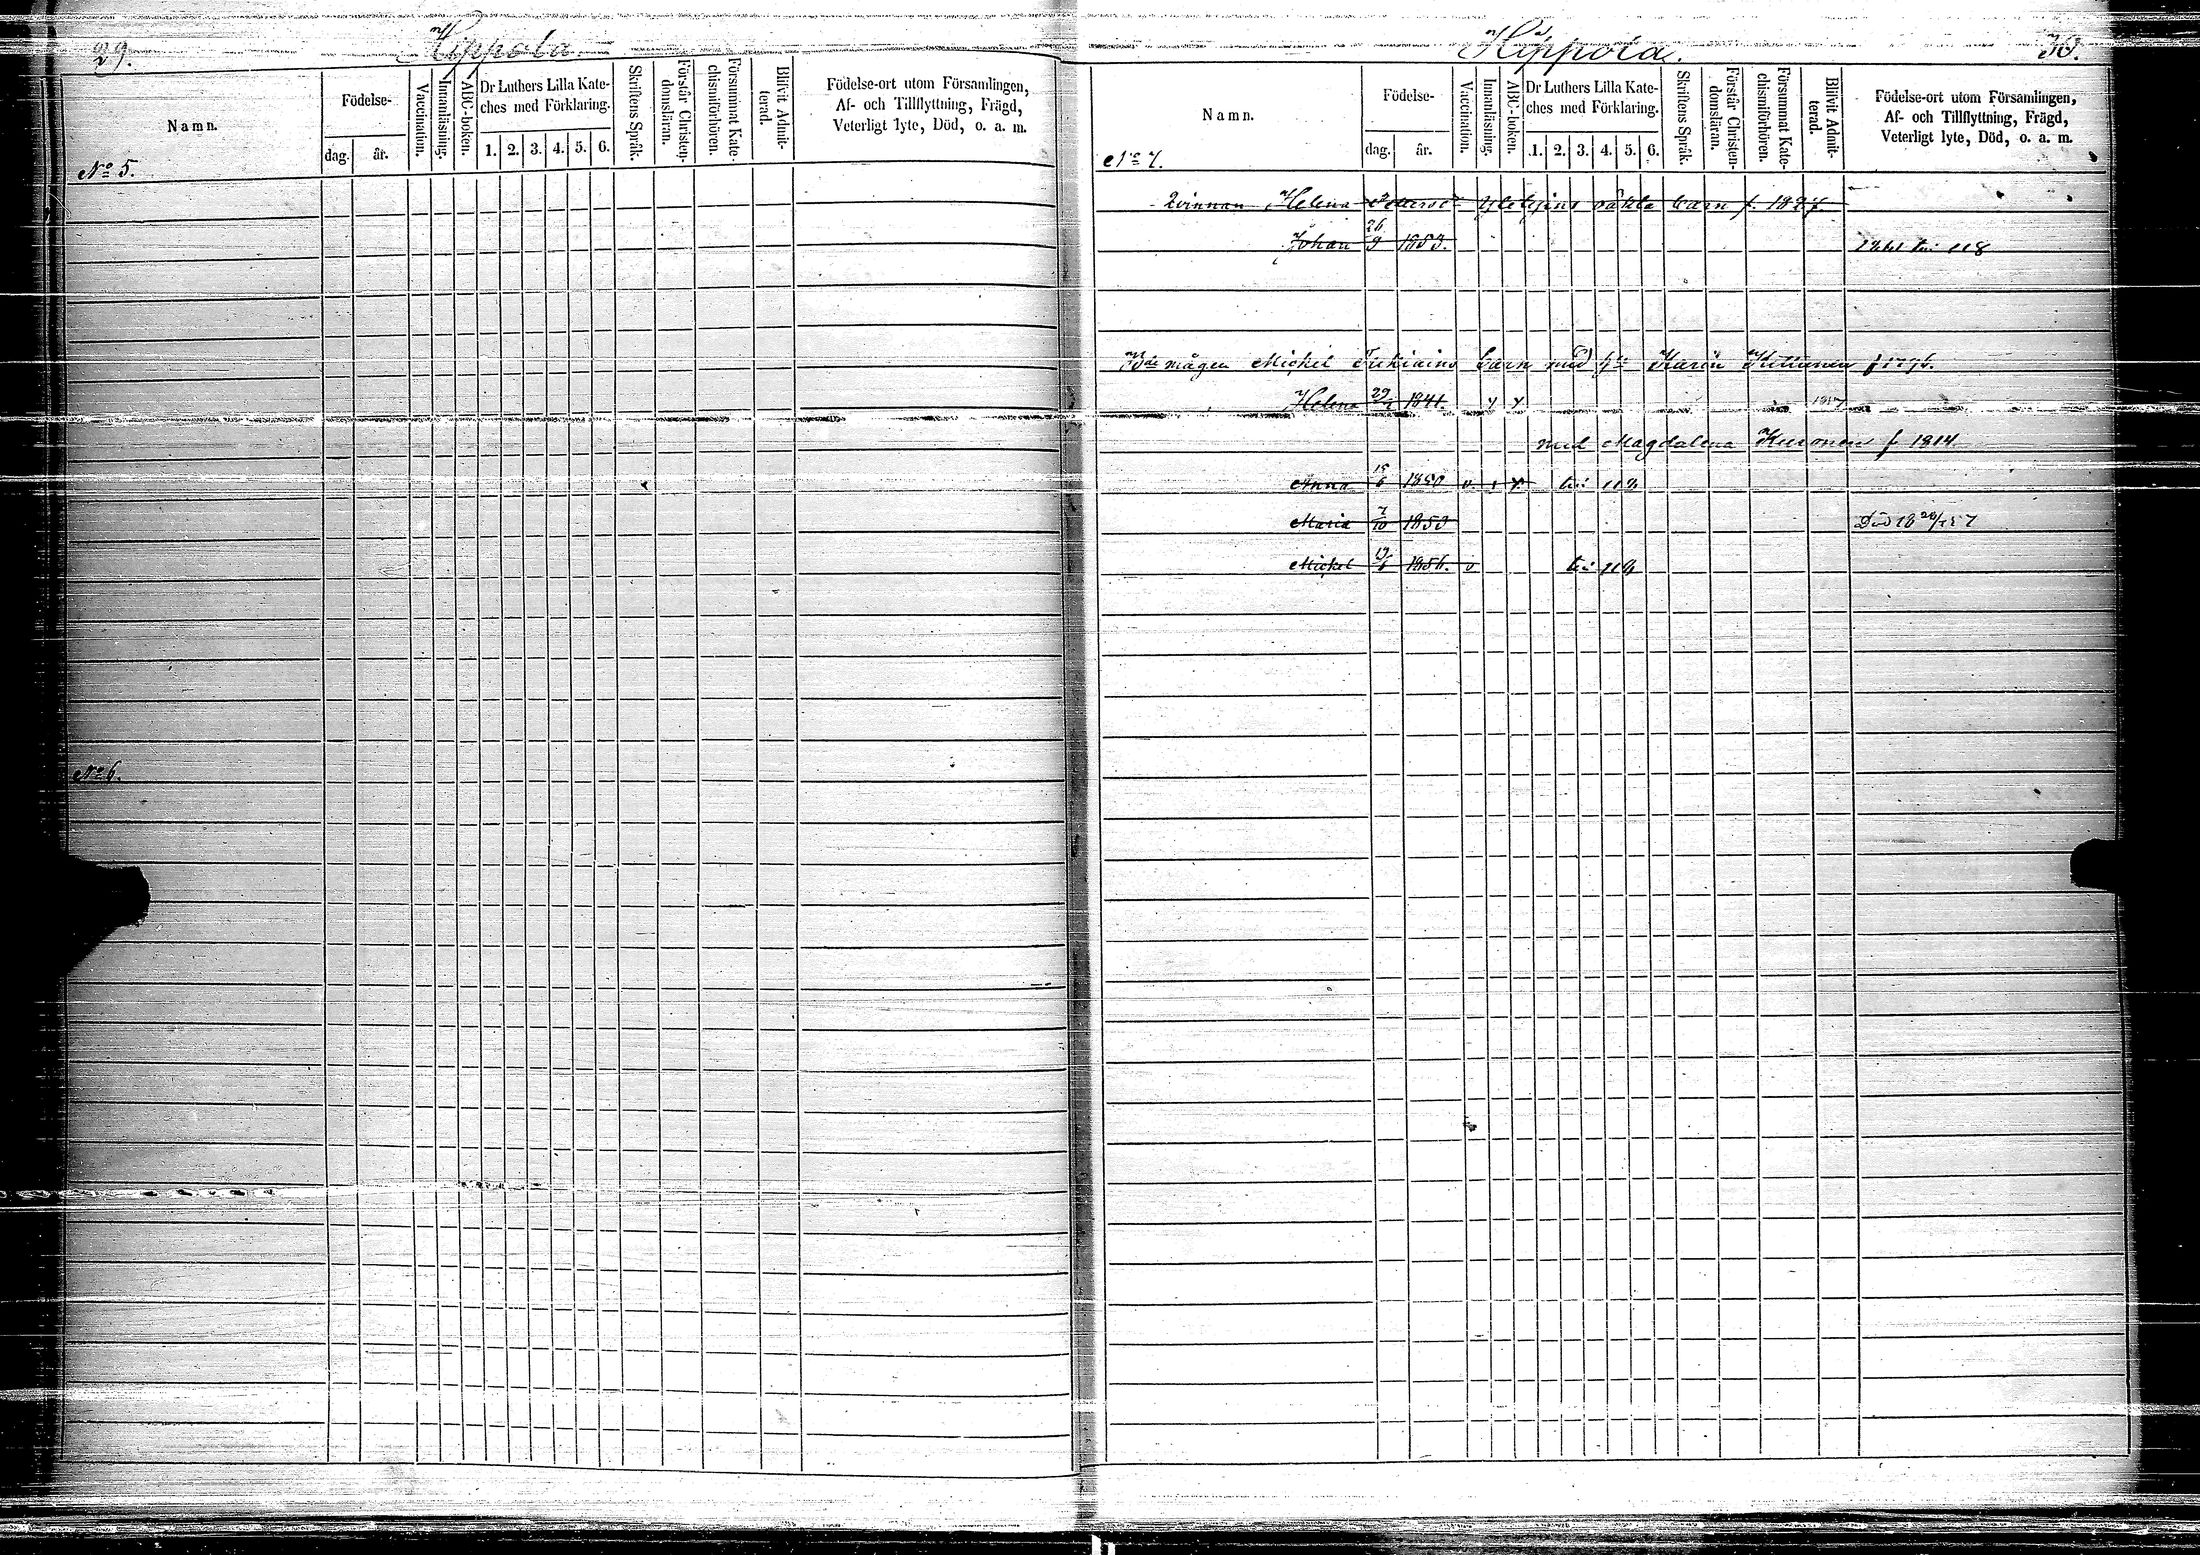 29.
Hippola.
Namn.
Födelse-
dag.
år.
Vaccination.
Innanläsning.
ABC-boken.
Dr Luthers Lilla Kate-
ches med Förklaring.
1. 2. 3. 4. 5. 6.
Skriftens Språk.
Förstår Christen-
domsläran.
Försummat Kate-
chismiförhören.
Blifvit Admit-
terad.
Födelse-ort utom Församlingen,
Af- och Tillflyttning, Frägd,
Veterligt lyte, Död, o. a. m.
No 5.
No 6.
Hippola.
30.
Namn.
Födelse-
dag.
år.
Vaccination.
Innanläsning.
ABC-boken.
Dr Luthers Lilla Kate-
ches med Förklaring.
1. 2. 3. 4. 5. 6.
Skriftens Språk.
Förstår Christen-
domsläran.
Försummat Kate-
chismiförhören.
Blifvit Admit-
terad.
Födelse-ort utom Församlingen,
Af- och Tillflyttning, Frägd,
Veterligt lyte, Död, o. a. m.
No 7.
Qvinnan Helena oäkta barn f. 1827.
Johan 26/9 1853. 118
mågen Michel barn med Karin f 1796.
Helena 1841.
med Magdalena Kuronen f 1814
Anna 15/6 1850 v. 118
Maria 7/10 1853 Död
Michel 1856. v 118